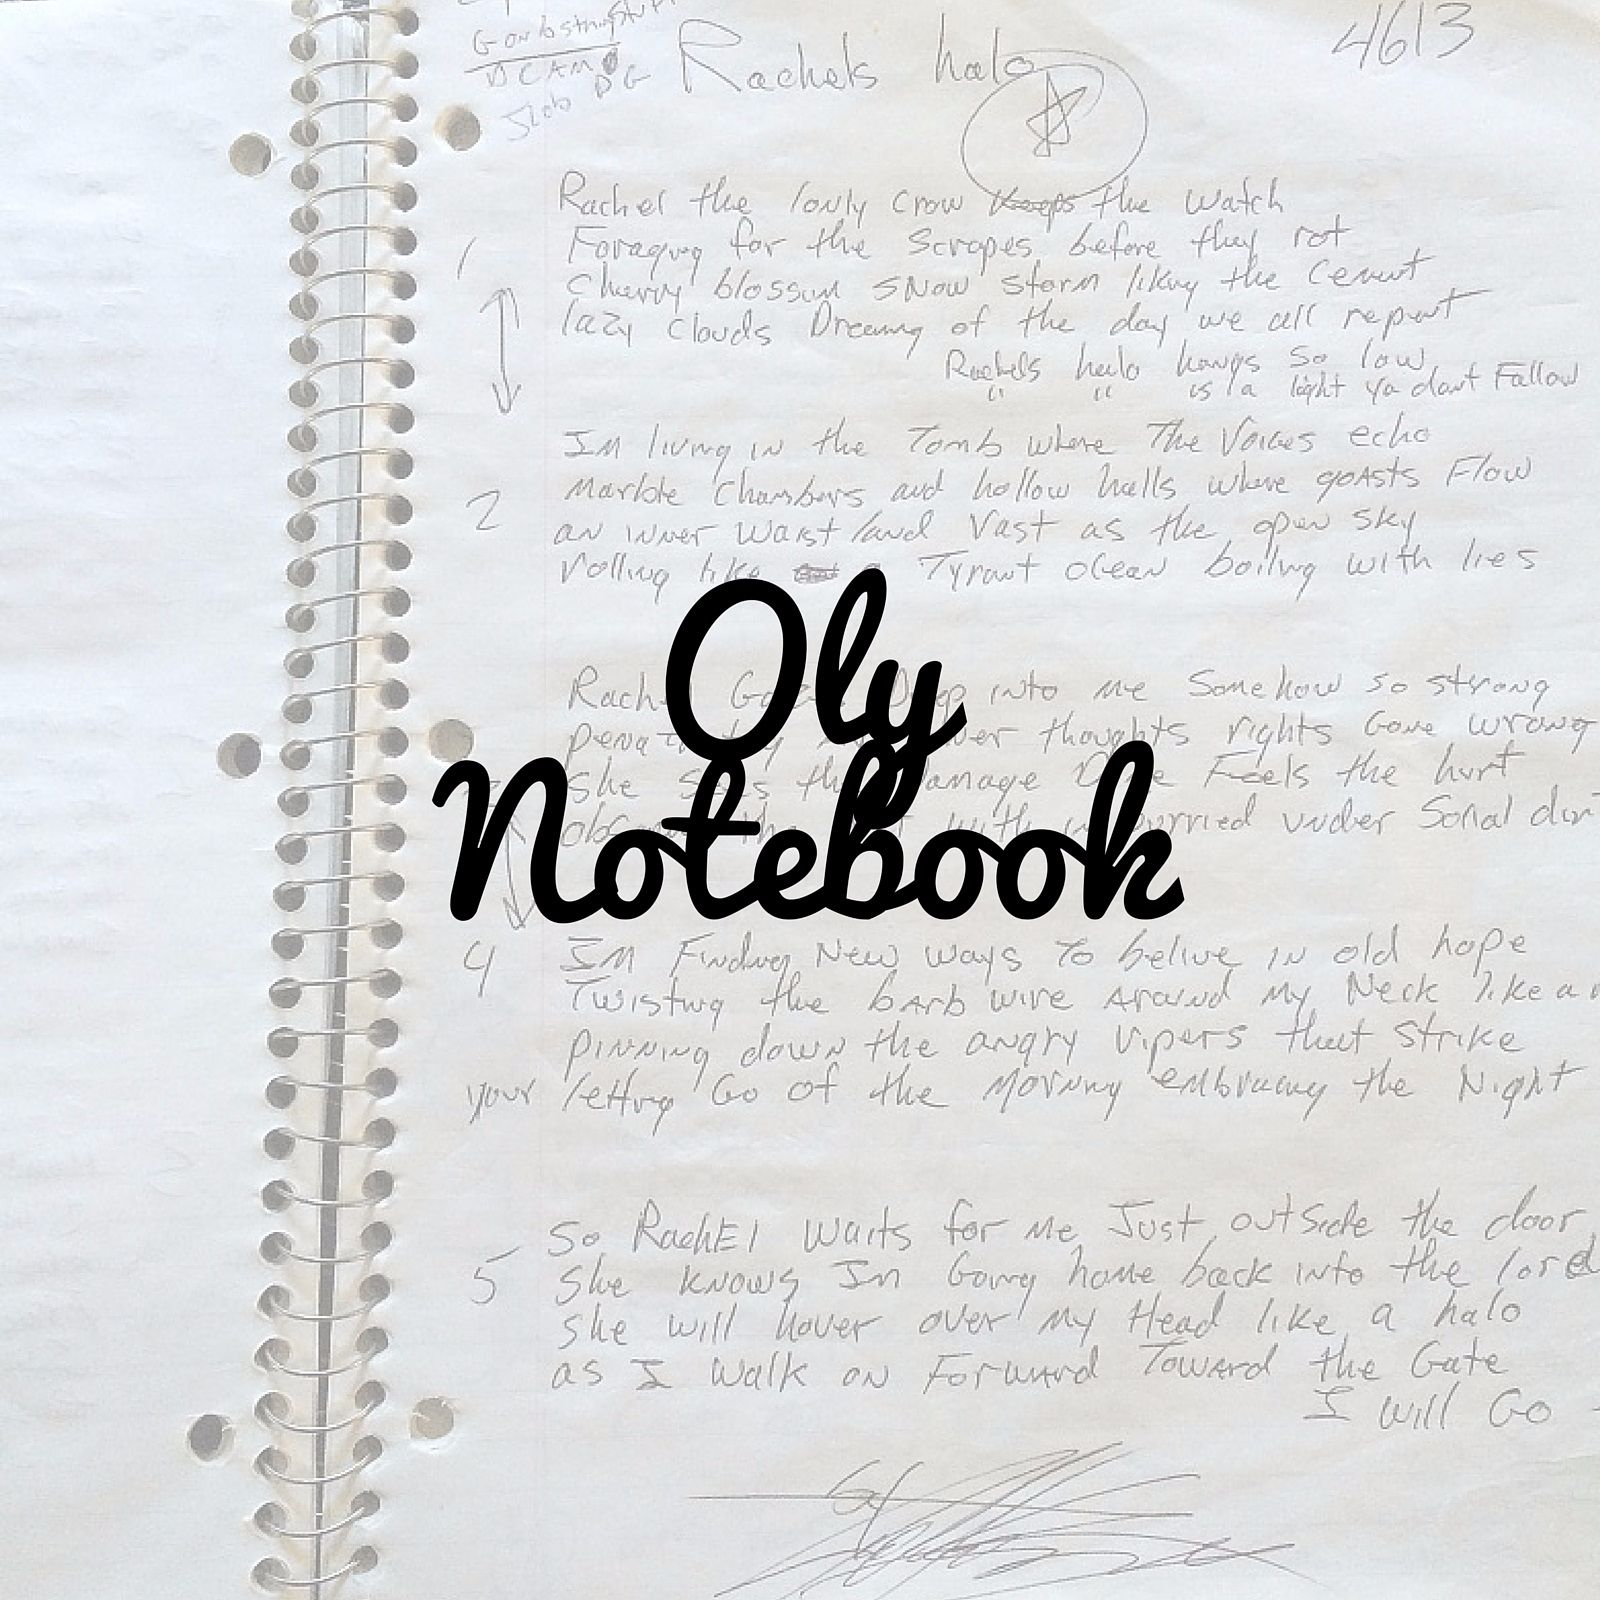 Rachels halo
4613
Rachel the lonly crow keeps the watch
1
Foraging for the Scrapes before they rot
Cherry blossum snow storm liking the Cement
lazy clouds Dreaming of the day we all repent
Rachels halo hangs so low
" " is a light ya dont Follow
Im living in the Tomb where The Voices echo
2
Marble Chambers and hollow halls where goasts Flow
an inner waist land Vast as the open sky
rolling like a Tyrant ocean boiling with lies
Oly
Notebook
Rachel Deep into me Somehow so strong
thoughts rights Gone wrong
She Sees the Damage Feels the hurt
burried under Sonal dirt
4
Im Finding New ways To belive in old hope
Twisting the barb wire Around My Neck like a
pinning down the angry vipers that strike
your letting Go of the Morning embracing the Night
So RachEl waits for me Just outside the door
5
She knows Im Going home back into the lord
She will hover over my Head like a halo
as I walk on Forward Toward the Gate
I will Go